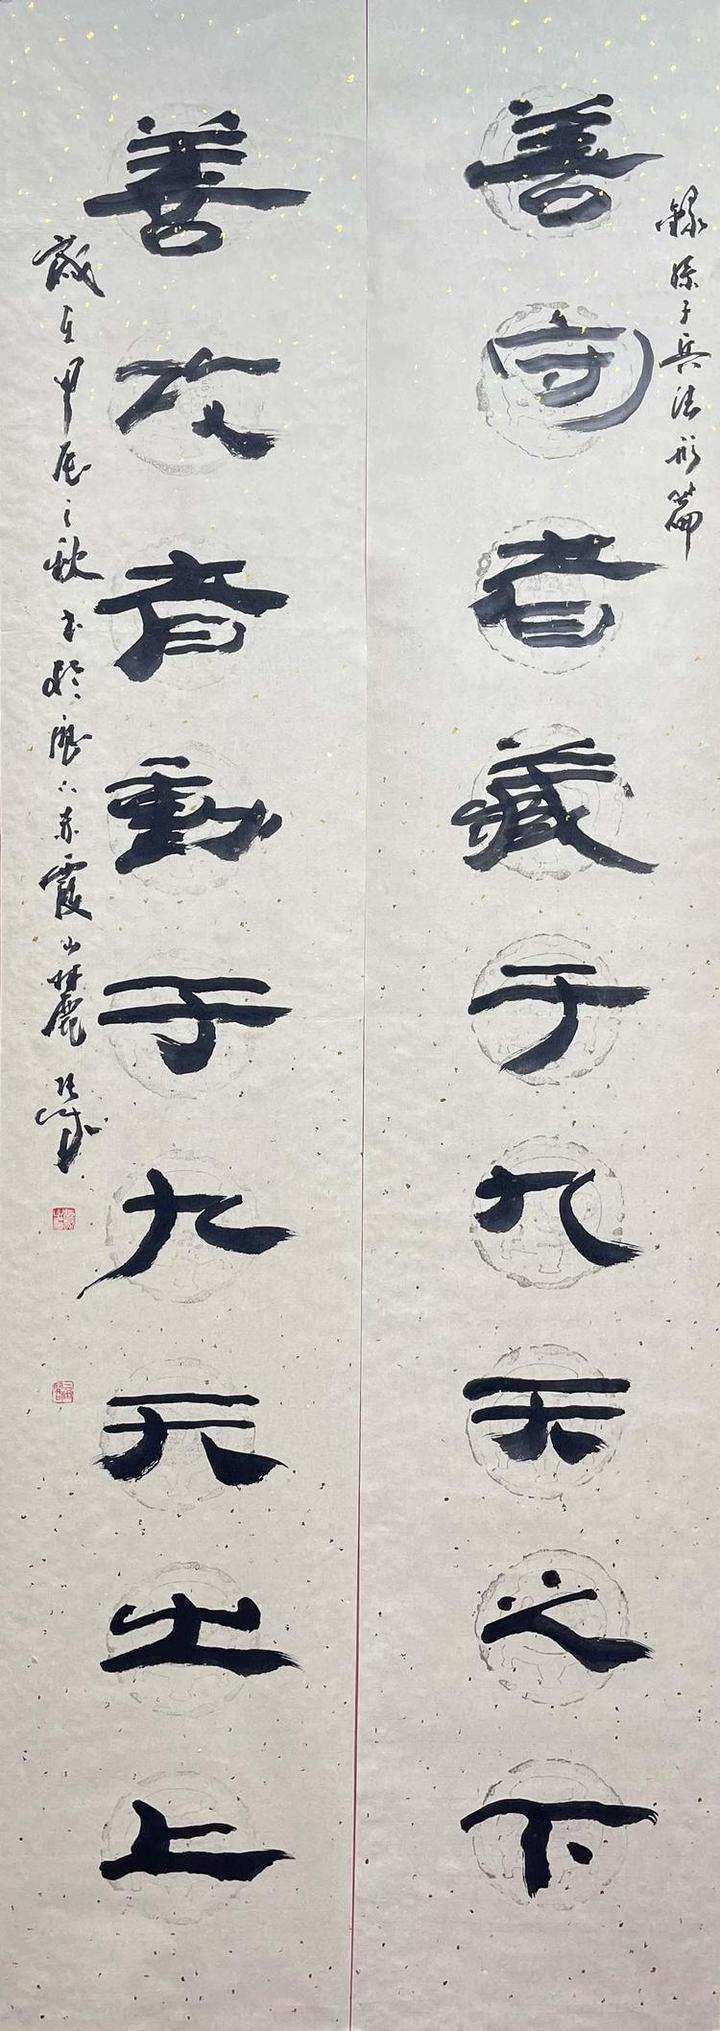 錄孫子兵法形篇
善守者藏于九天之下
善攻者動于九天之上
歲在甲辰之秋書於霞山麓